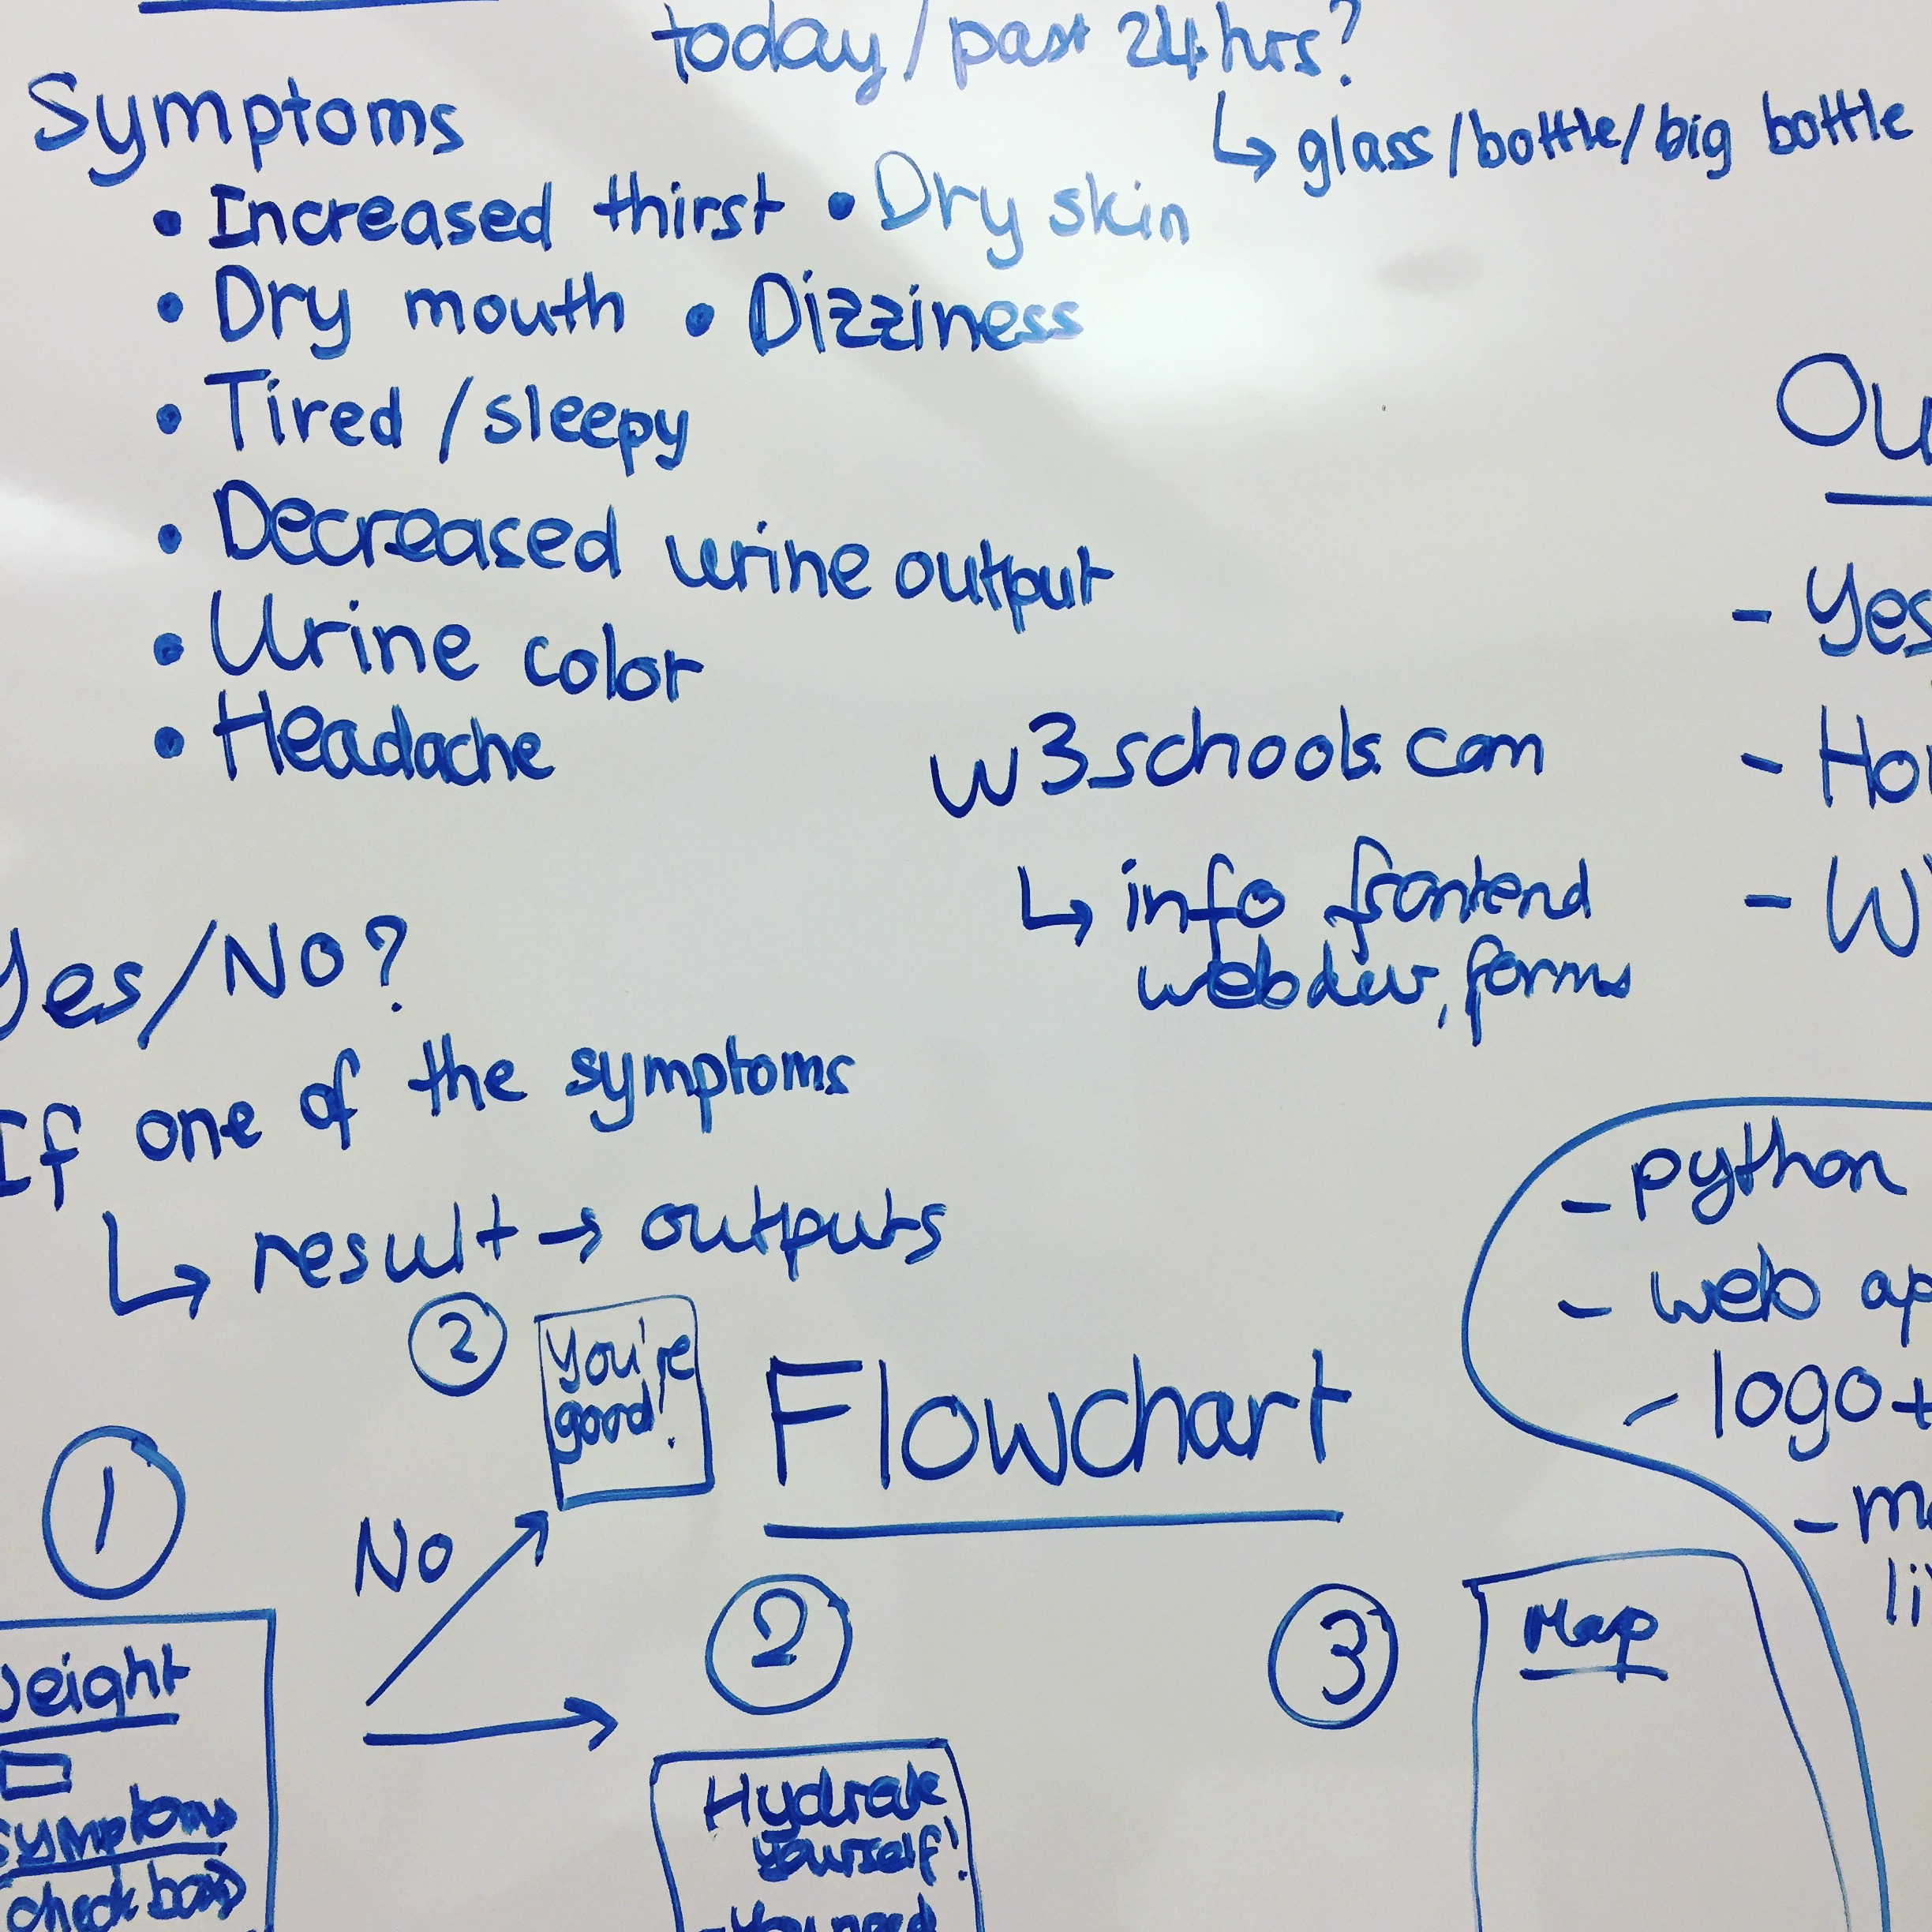 today/past 24hrs?
↳ glass/bottle/big bottle
Symptoms
• Increased thirst • Dry skin
• Dry mouth • Dizziness
• Tired/sleepy
• Decreased urine output
• Urine color
• Headache
w3schools.com
↳ info frontend
webdev, forms
Ou
- Yes
- Ho
- W
Yes/No?
If one of the symptoms
↳ result → outputs
- python
- web ap
- logo+
- m
li
Flowchart
1
No
2
You're
good!
2
3
eight
symptoms
Hydrate
yourself!
- You need
Map